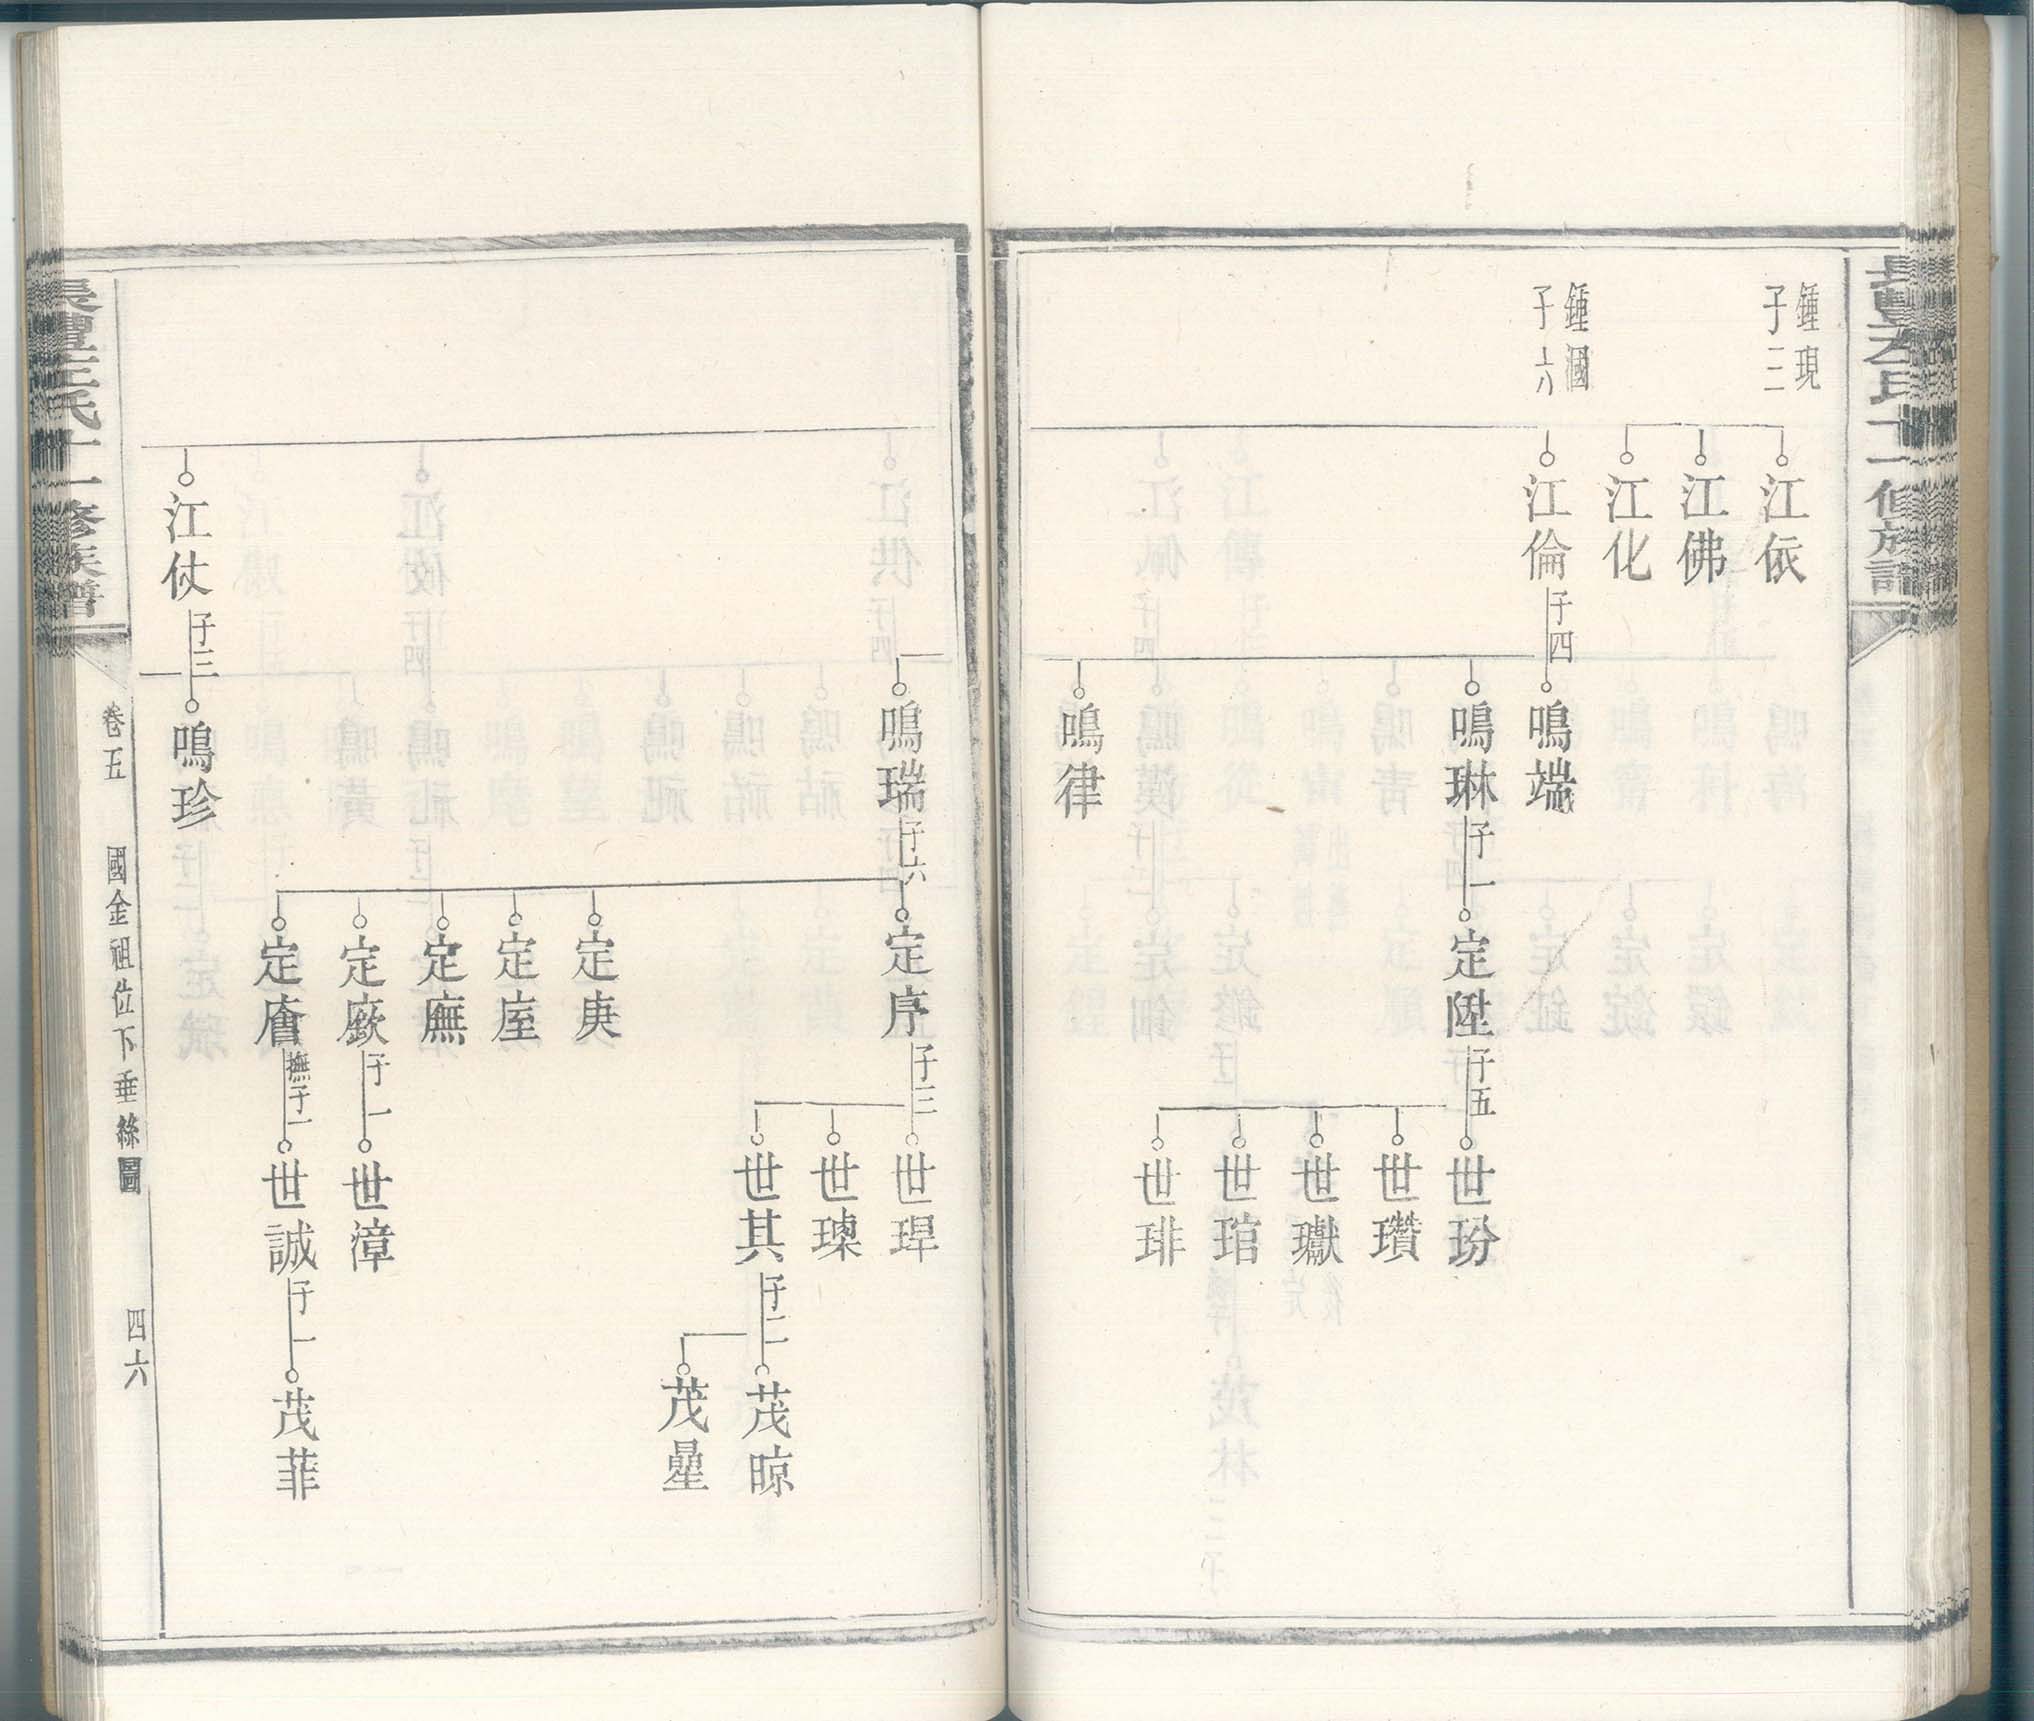 鍾現
子三
江依
江佛
江化
鍾國
子六
江倫
子四
鳴端
鳴琳
子一
定陞
子五
世玢
世瓚
世瓛
世琯
世琲
鳴律
鳴瑞
子六
定序
子三
世琾
世其
子二
茂晾
茂曐
定庚
定庢
定廡
定廞
子一
世漳
定廥
撫子一
世誠
子一
茂菲
江仗
子三
鳴珍
十一修族譜
卷五
國金祖位下垂絲圖
四六